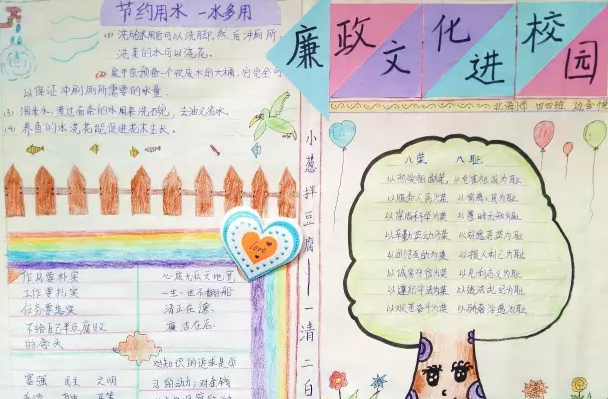 节约用水 一水多用
(1) 洗脸水用后可以洗脚,然后冲厕所
洗菜的水可以浇花。
(2) 家中应预备一个收废水的大桶,它完全可
以保证冲刷厕所需要的水量
(3) 淘米水,煮过面条的水用来洗碗,去油又省水。
(4) 养鱼的水浇花能促进花木生长。
廉政文化进校园
小葱拌豆腐——一清二白
love
作风要朴实
工作要扎实
任务要落实
心底无私天地宽
一生一世不翻船
清正在德
廉洁在志
对知识的追求是
富强 民主 文明
八荣 八耻
以热爱祖国为荣 以危害祖国为耻
以服务人民为荣 以背离人民为耻
以崇尚科学为荣 以愚昧无知为耻
以辛勤劳动为荣 以好逸恶劳为耻
以团结互助为荣 以损人利己为耻
以诚实守信为荣 以见利忘义为耻
以遵纪守法为荣 以违法乱纪为耻
以艰苦奋斗为荣 以骄奢淫逸为耻